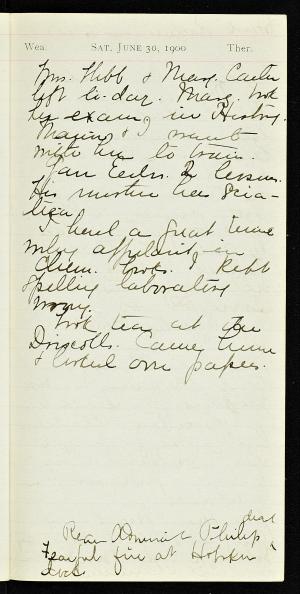 Wea. SAT. JUNE 30, 1900 Ther.
Mrs. Hibb & Mary Carter
left to-day. Mary took
her exam, in History.
& I went
with her to train.
lesson.
His mother has scia-
tica.
I had a great time
in
Chem. I kept
spelling laboratory
wrong.
Took tea at the
Driscolls. Came home
& looked over papers.
Rear Admiral Philip dead
Fearful fire at Hoboken
docks